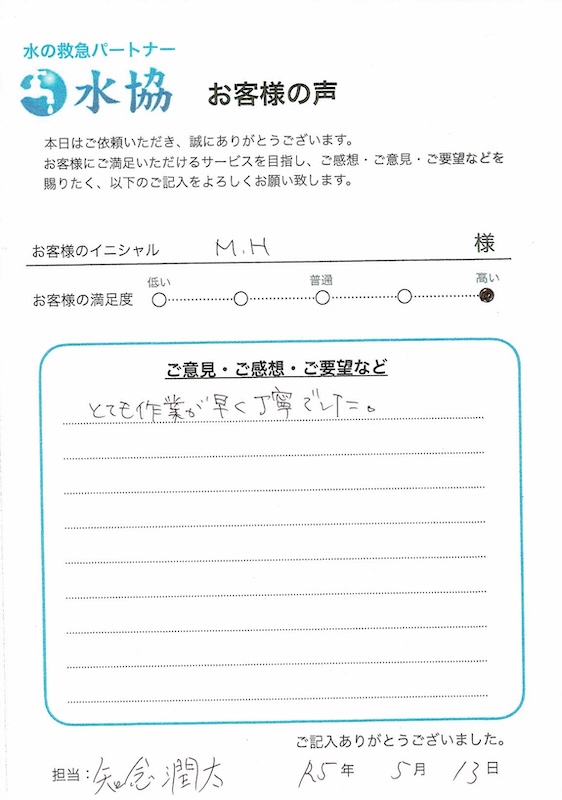 水の救急パートナー
水協 お客様の声
本日はご依頼いただき、誠にありがとうございます。
お客様にご満足いただけるサービスを目指し、ご感想・ご意見・ご要望などを
賜りたく、以下のご記入をよろしくお願い致します。
お客様のイニシャル M.H 様
低い 普通 高い
お客様の満足度
ご意見・ご感想・ご要望など
とても作業が早く丁寧でした。
ご記入ありがとうございました。
担当：知念潤太 R5年 5月 13日